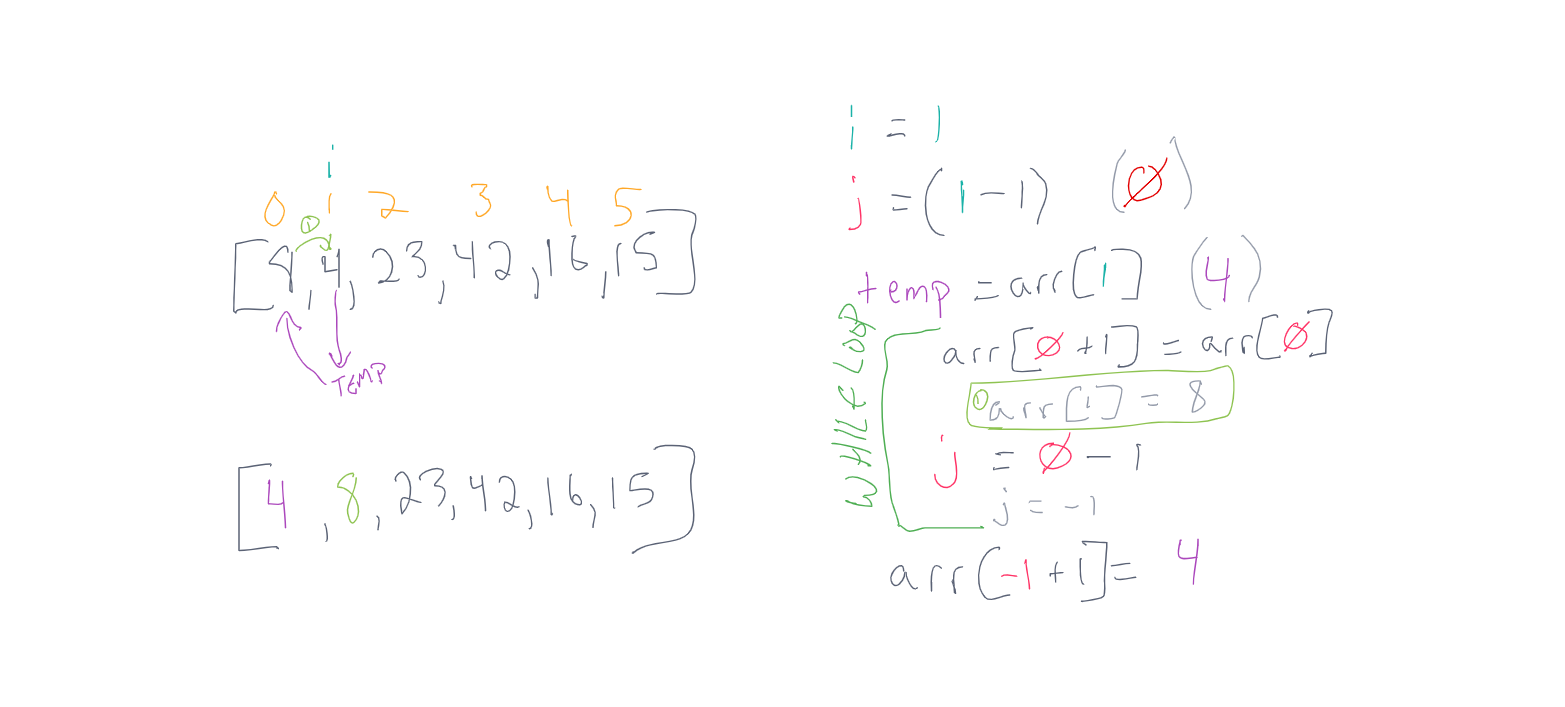 i
0 1 2 3 4 5
①
[8, 4, 23, 42, 16, 15]
TEMP
[4, 8, 23, 42, 16, 15]
i = 1
j = (1 - 1) (0)
temp = arr[1] (4)
WHILE LOOP
arr[0 + 1] = arr[0]
① arr[1] = 8
j = 0 - 1
j = -1
arr[-1 + 1] = 4